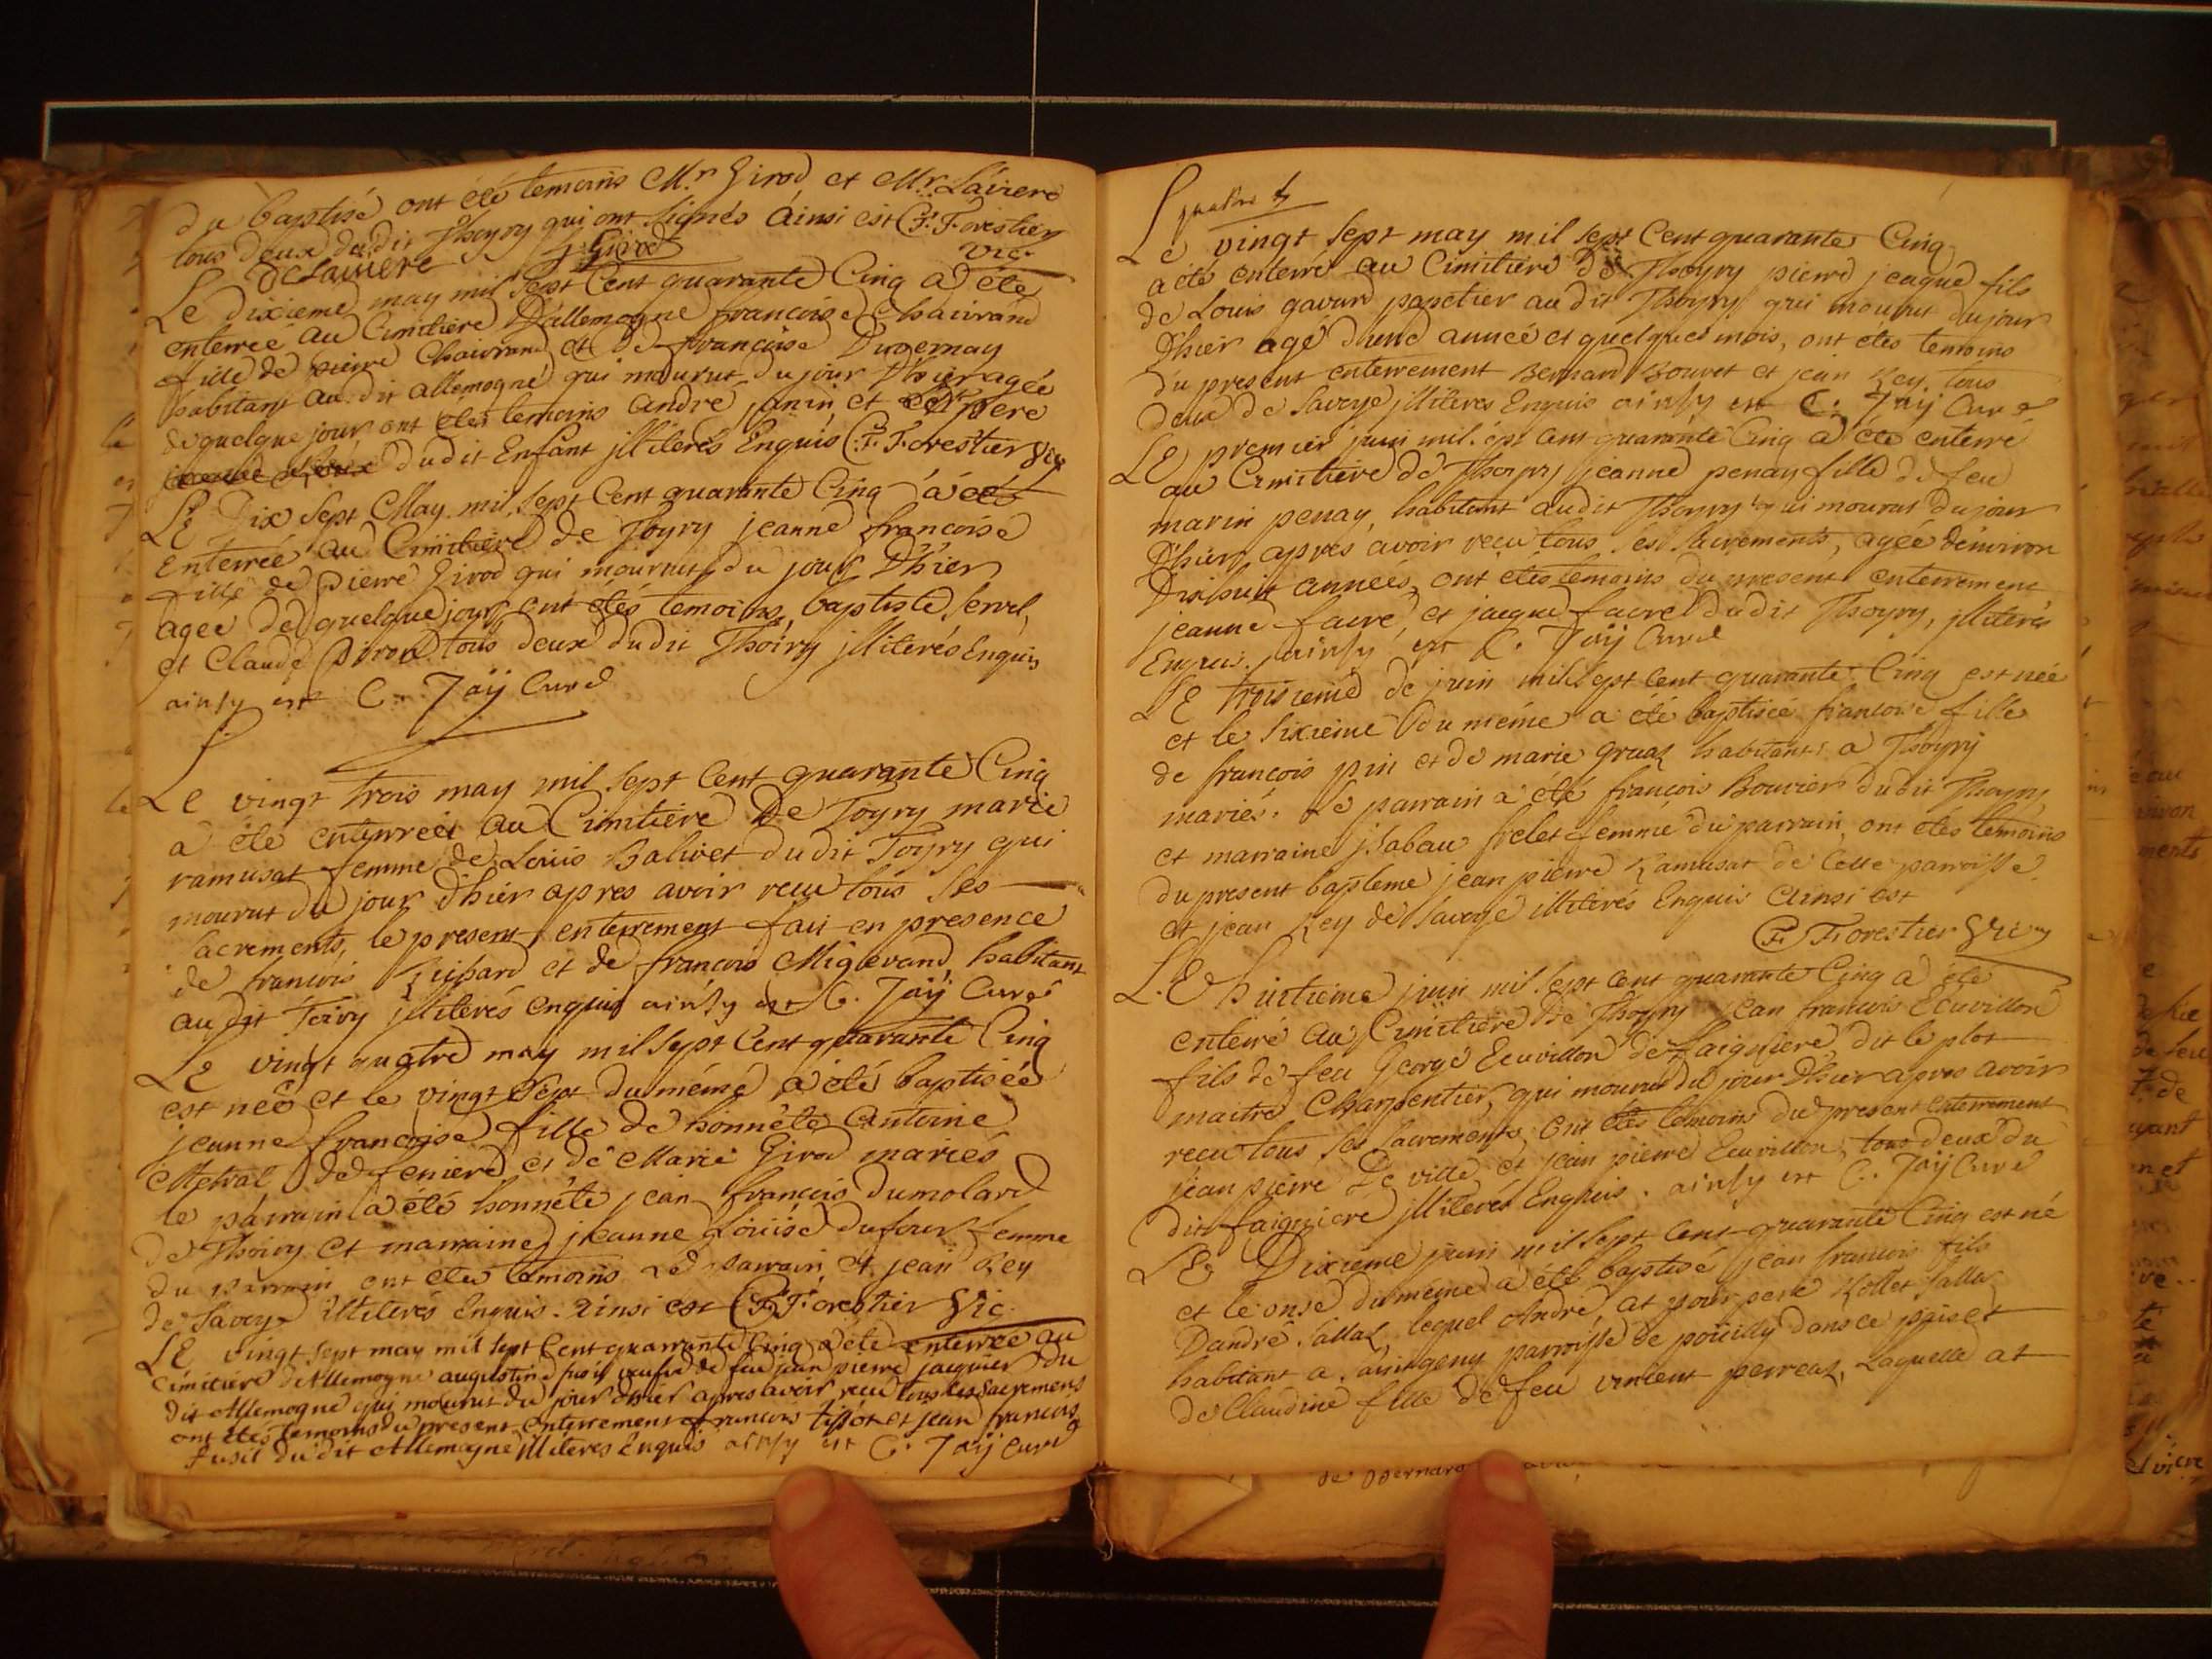 du baptisé ont été temoins Mr Girod et Mr. Laviere
tous deux dudit Thoyry qui ont signés ainsi est C. F. Forestier
Delaviere J. Girod vic.
Le dixieme may mil sept cent quarante Cinq a été
enterrée au Cimitiere D'allemogne francoise Chaivrand
fille de pierre Chaivrand et de françoise Dugernay
habitant audit allemogne qui mourut du jour d'hier agée
de quelque jour ont étés temoins andré janin et pere
dudit Enfant jlliterés Enquis C. F. Forestier Vic
Le Dix sept May mil sept Cent quarante Cinq a été
Enterrée au Cimitiere de Toyry jeanne francoise
fille de pierre Girod qui mourut du jour D'hier
agée de quelque jour ont étés temoins, baptiste
et Claude Piron tous deux dudit Thoiry jlliterés Enquis
ainsy est C. Jaÿ Curé
Le vingt trois may mil sept Cent quarante Cinq
a été enterrée au Cimitiere De Toyry marie
ramusat femme de Loüis Balivet dudit Toyry qui
mourut du jour d'hier apres avoir recu tous ses
sacrements, le present enterrement fait en presence
de francois Richard et de francois Migevand habitant
audit Toiry jlliterés enquis ainsy est C. Jaÿ Curé
Le vingt quatre may mil sept Cent quarante Cinq
est neé et le vingt Sept du méme a été baptiseé
jeanne françoise fille de honnéte Antoine
Metral de feniere et de Marie Girod mariés
le parrain a été honnéte jean françois Dumolard
de Thoiry et marraine jeanne Loüise dufour femme
du parrain ont étés temoins Le parrain et jean Rey
de Savoye illiterés Enquis. ainsi est C. F. Forestier Vic.
LE vingt sept may mil sept Cent quarrante Cinq a été enterrée au
Cimitiere d'Allemogne augustine fusil veufve de feu jean pierre jacquier du
dit Allemogne qui mourut du jour d'hier apres avoir recu tous ses sacrements
ont étés temoins du present enterrement francois tissot et jean francois
fusil du dit Allemogne illiteres Enquis ainsy est C. Jaÿ Curé
Le vingt sept may mil sept Cent quarante Cinq
a été enterré au Cimitiere de Thoyry pierre jeaque fils
de Louis gavard papetier au dit Thoyry qui mourut du jour
D'hier agé d'une année et quelques mois, ont étés temoins
du present enterrement Bernard Bouvet et jean Rey tous
deux de Savoye jlliteres Enquis ainsy est C. Jaÿ Curé
LE premier juin mil sept cent quarante Cinq a été enterré
au Cimitiere de Thoyry jeanne penay fille de feu
marin penay, habitant audit Thoyry qui mourut du jour
D'hier apres avoir recu tous ses sacrements, ageé denviron
Dixhuit anneés, ont étés temoins du present enterrement
jeanne favre, et jaeque favre dudit Thoyry, jlliterés
Enquis. ainsy est C. Jaÿ Curé
LE troisieme de juin mil sept cent quarante Cinq est née
et le sixieme du méme a été baptiseé francoise fille
de françois pin et de marie Gruaz habitant a Thoyry
mariés. Le parrain a été françois Bouvier dudit Thoyry
et marraine jsabau frelet femme du parrain, ont étés temoins
du present baptéme jean pierre Ramusat de Cette parroisse
et jean Rey de Savoye illiterés Enquis ainsi est
C. F. Forestier Vic
LE huitieme juin mil sept cent quarante Cinq a été
enterré au Cimitiere De Thoyry jean francois Ecuvillon
fils de feu George Ecuvillon de faigniere dit le plot
maitre Charpentier, qui mourut du jour D'hier apres avoir
recu tous ses sacrements, ont étés temoins du present enterrement
jean pierre De ville et jean pierre Ecuvillon, tous deux du
dit faigniere jlliterés Enquis. ainsy est C. Jaÿ Curé
LE Dixiéme juin mil sept cent quarante Cinq est né
et le onse du méme a été baptisé jean francois fils
Dandré Sallaz lequel André, at pour pere Rollet Salla
habitant a parroisse de poüilly dans ce païs et
de Claudine fille de feu vincent perreaz, Laquelle at